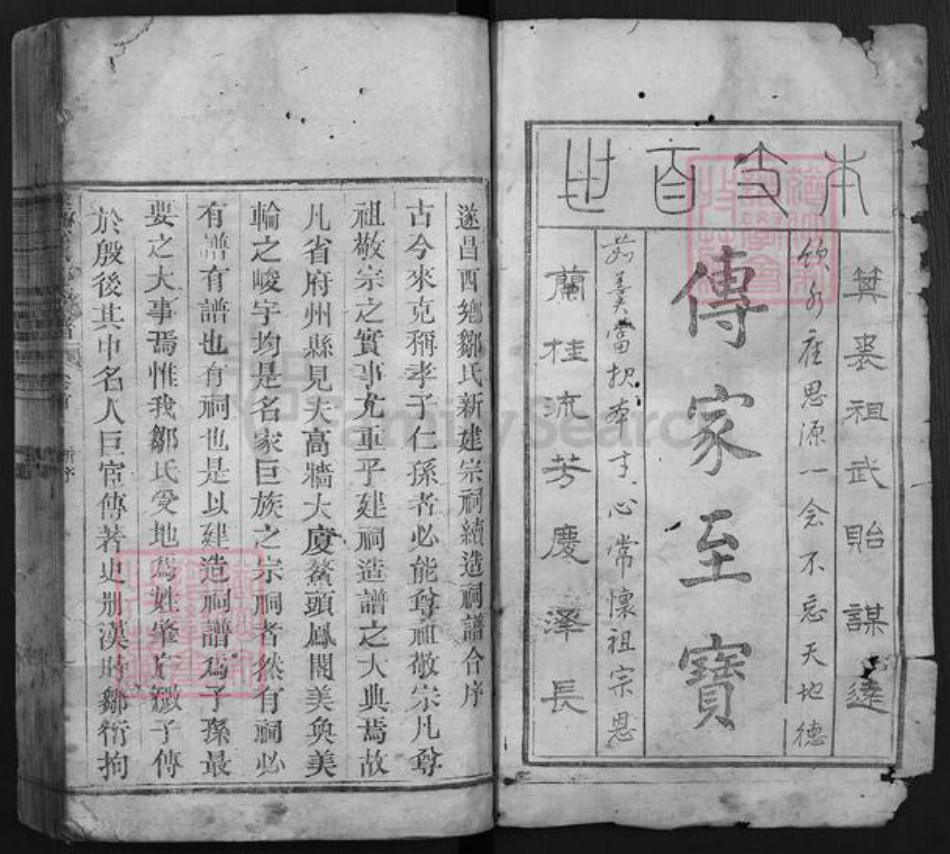 本支百世
箕裘祖武貽謀遠
飲水應思源一會不忘天地德
傳家至寶
羹當報本寸心常懷祖宗恩
蘭桂流芳慶澤長
遂昌西鄉鄒氏新建宗祠續造祠譜合序
古今來克稱孝子仁孫者必能尊祖敬宗凡尊
祖敬宗之實事尤重乎建祠造譜之大典焉故
凡省府州縣見夫高牆大廈鰲頭鳳閣美奐美
輪之峻宇均是名家巨族之宗祠者然有祠必
有譜有譜也有祠也是以建造祠譜為子孫最
要之大事焉惟我鄒氏受地為姓肇良微子傳
於殷後其中名人巨宦傳著史册漢時鄒衍拘
FamilySearch